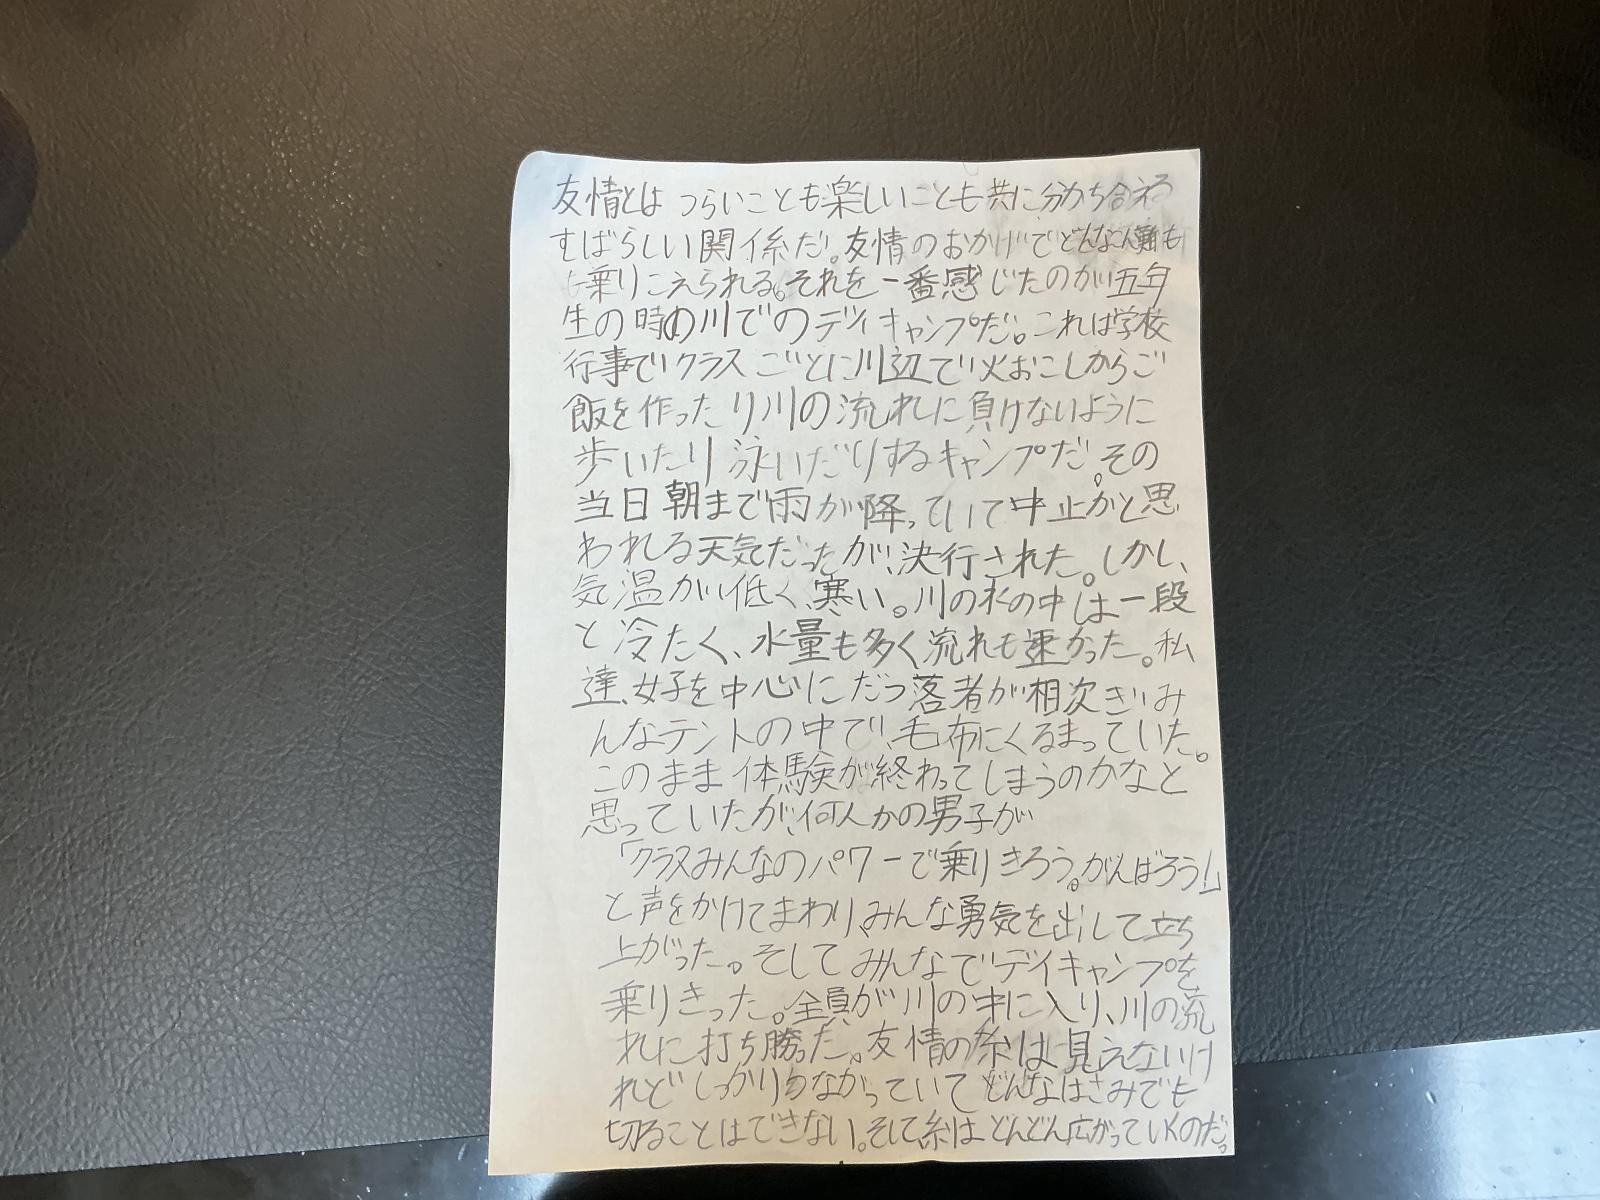 友情とは つらいことも楽しいことも共に分かち合える
すばらしい関係だ。友情のおかげでどんな困難も
乗りこえられる。それを一番感じたのが五年
生の時の川でのデイキャンプだ。これは学校
行事でクラスごとに川辺で火おこしからご
飯を作ったり川の流れに負けないように
歩いたり泳いだりするキャンプだ。その
当日朝まで雨が降っていて中止かと思
われる天気だったが、決行された。しかし、
気温が低く、寒い。川の水の中は一段
と冷たく、水量も多く流れも速かった。私
達、女子を中心にだつ落者が相次ぎ、み
んなテントの中で、毛布にくるまっていた。
このまま体験が終わってしまうのかなと
思っていたが、何人かの男子が
「クラスみんなのパワーで乗りきろう。がんばろう!」
と声をかけてまわり、みんな勇気を出して立ち
上がった。そしてみんなでデイキャンプを
乗りきった。全員が川の中に入り、川の流
れに打ち勝った。友情の糸は見えないけ
れどしっかりつながっていてどんなはさみでも
切ることはできない。そして糸はどんどん広がっていくのだ。